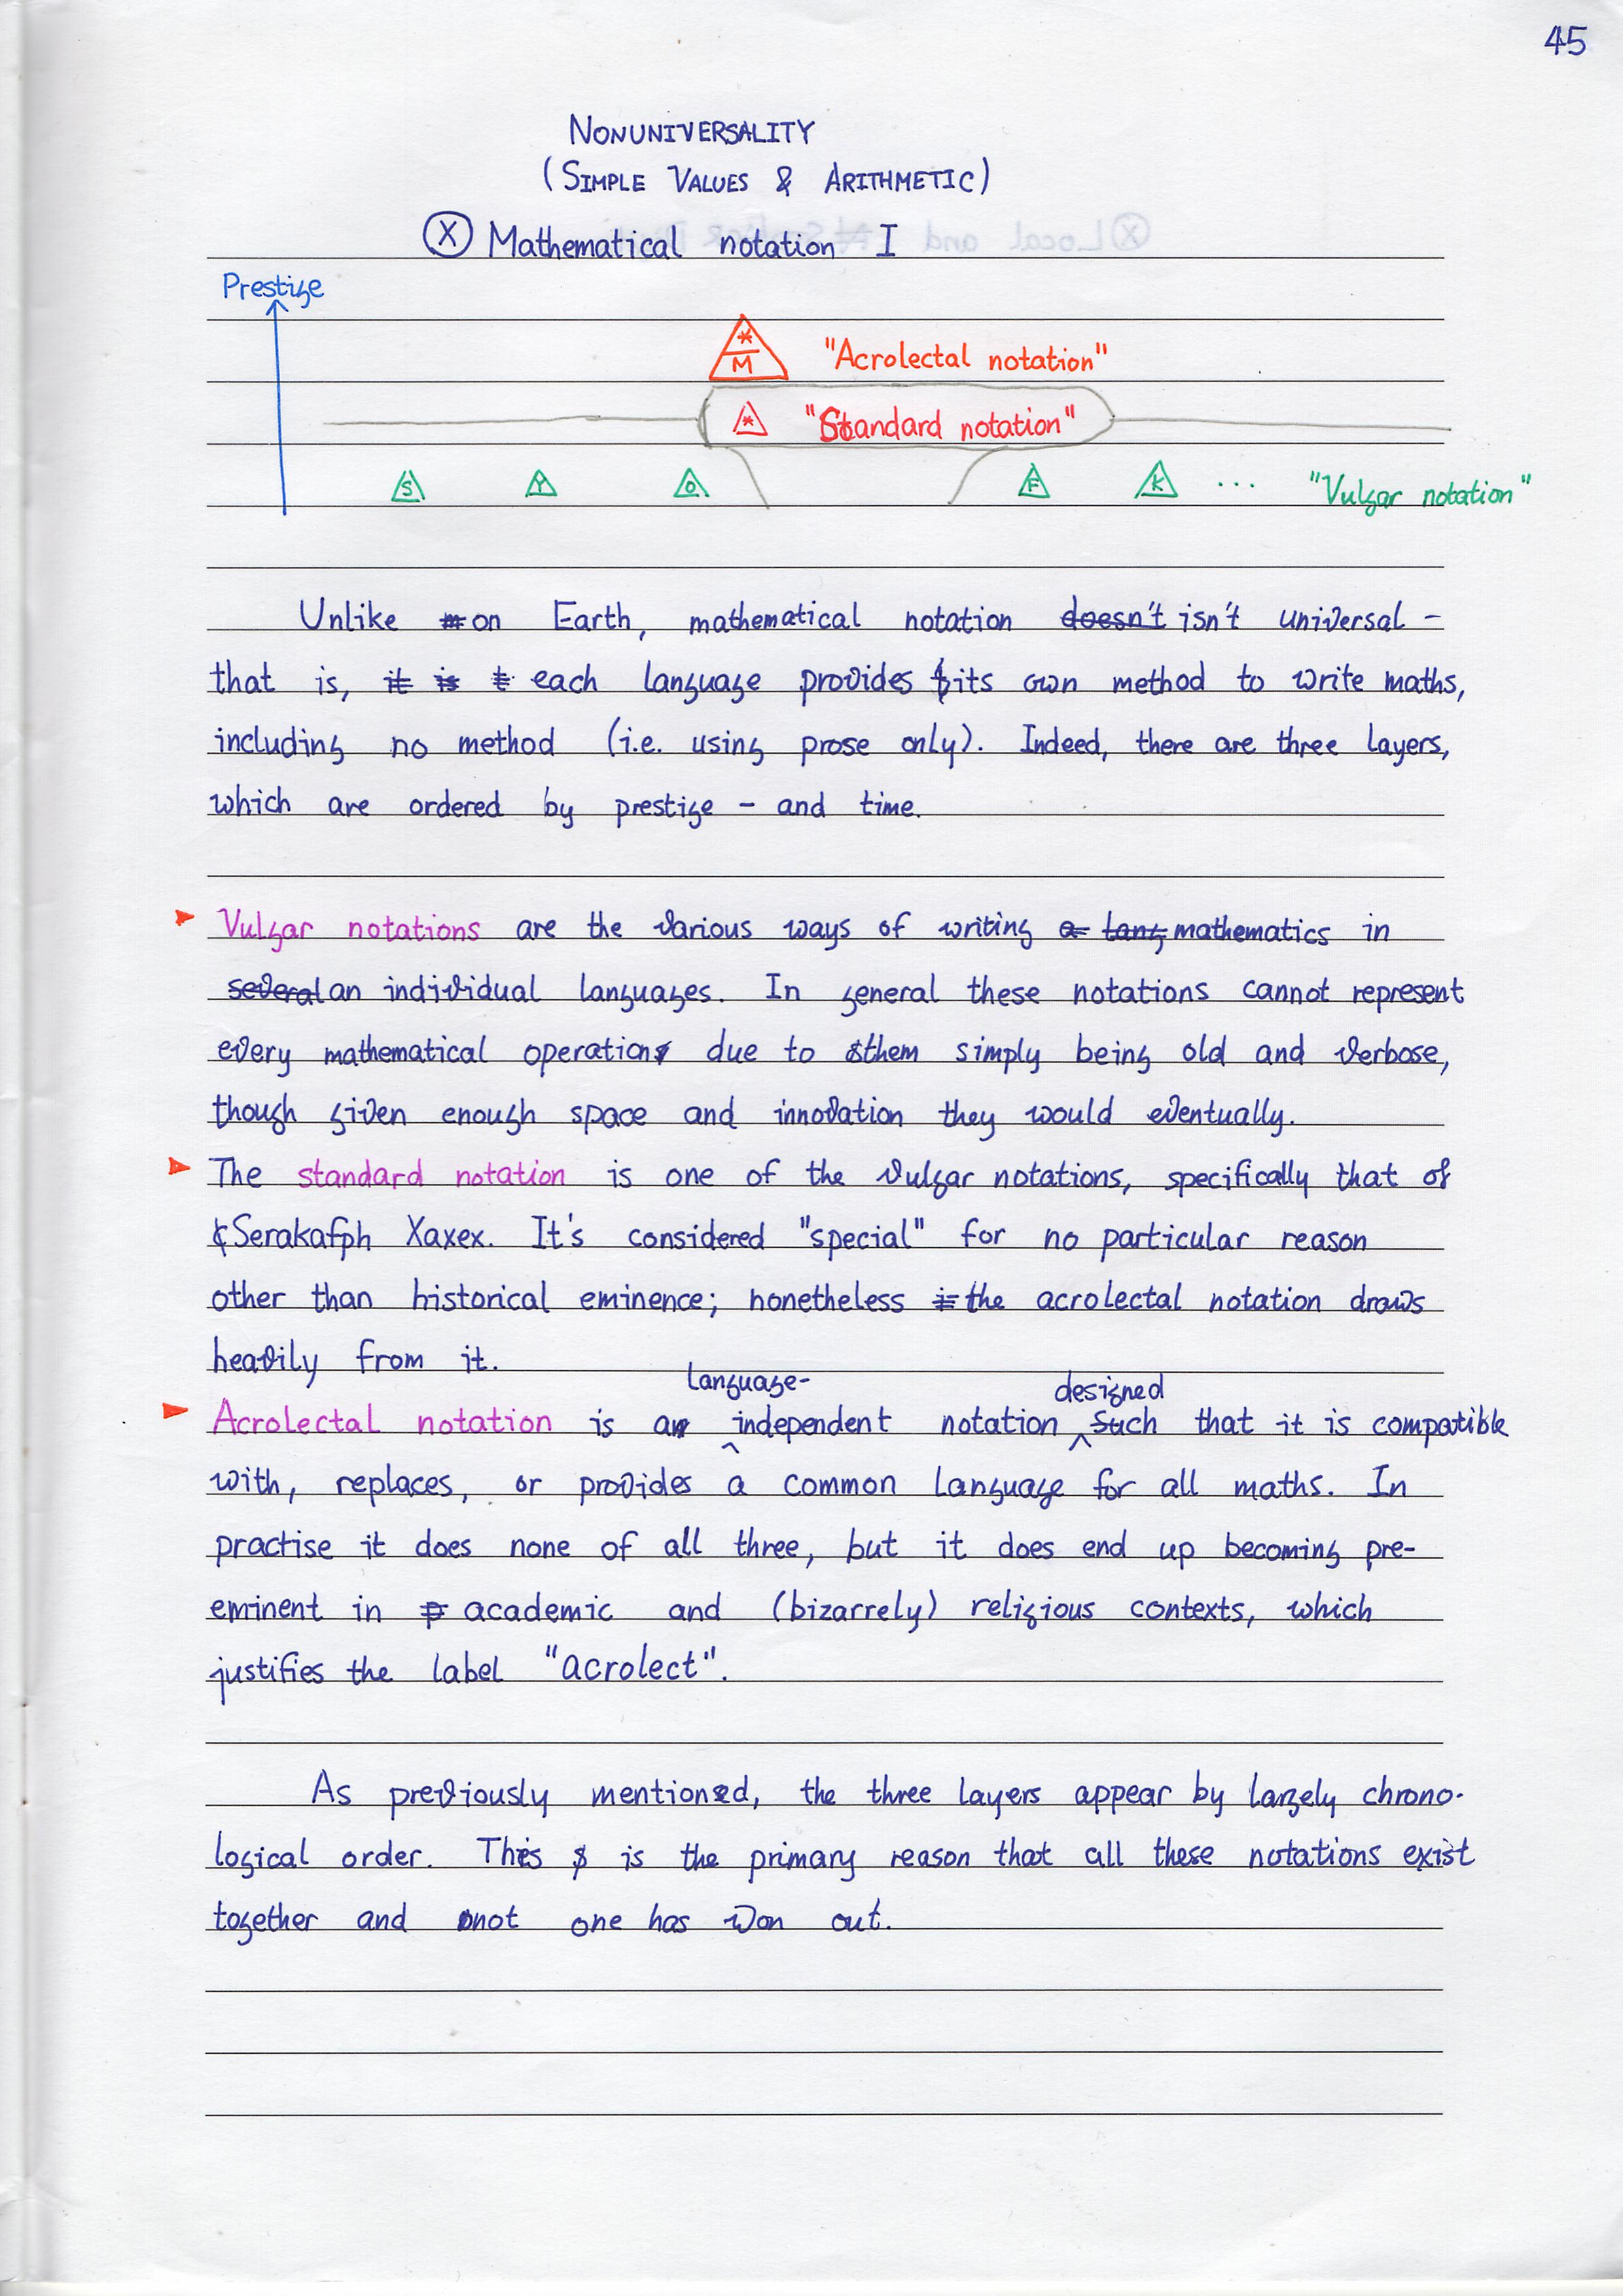 45
NONUNIVERSALITY
(SIMPLE VALUES & ARITHMETIC)
Ⓧ Mathematical notation I
Prestige
* M "Acrolectal notation"
* "Standard notation"
S Y O F K ... "Vulgar notation"
Unlike on Earth, mathematical notation doesn't isn't universal –
that is, it is each language provides its own method to write maths,
including no method (i.e. using prose only). Indeed, there are three layers,
which are ordered by prestige – and time.
Vulgar notations are the various ways of writing a lang mathematics in
several an individual languages. In general these notations cannot represent
every mathematical operation due to them simply being old and verbose,
though given enough space and innovation they would eventually.
The standard notation is one of the vulgar notations, specifically that of
Serakafph Xaxex. It's considered "special" for no particular reason
other than historical eminence; nonetheless the acrolectal notation draws
heavily from it.
language- designed
Acrolectal notation is a independent notation such that it is compatible
with, replaces, or provides a common language for all maths. In
practise it does none of all three, but it does end up becoming pre-
eminent in academic and (bizarrely) religious contexts, which
justifies the label "acrolect".
As previously mentioned, the three layers appear by largely chrono-
logical order. This is the primary reason that all these notations exist
together and not one has won out.